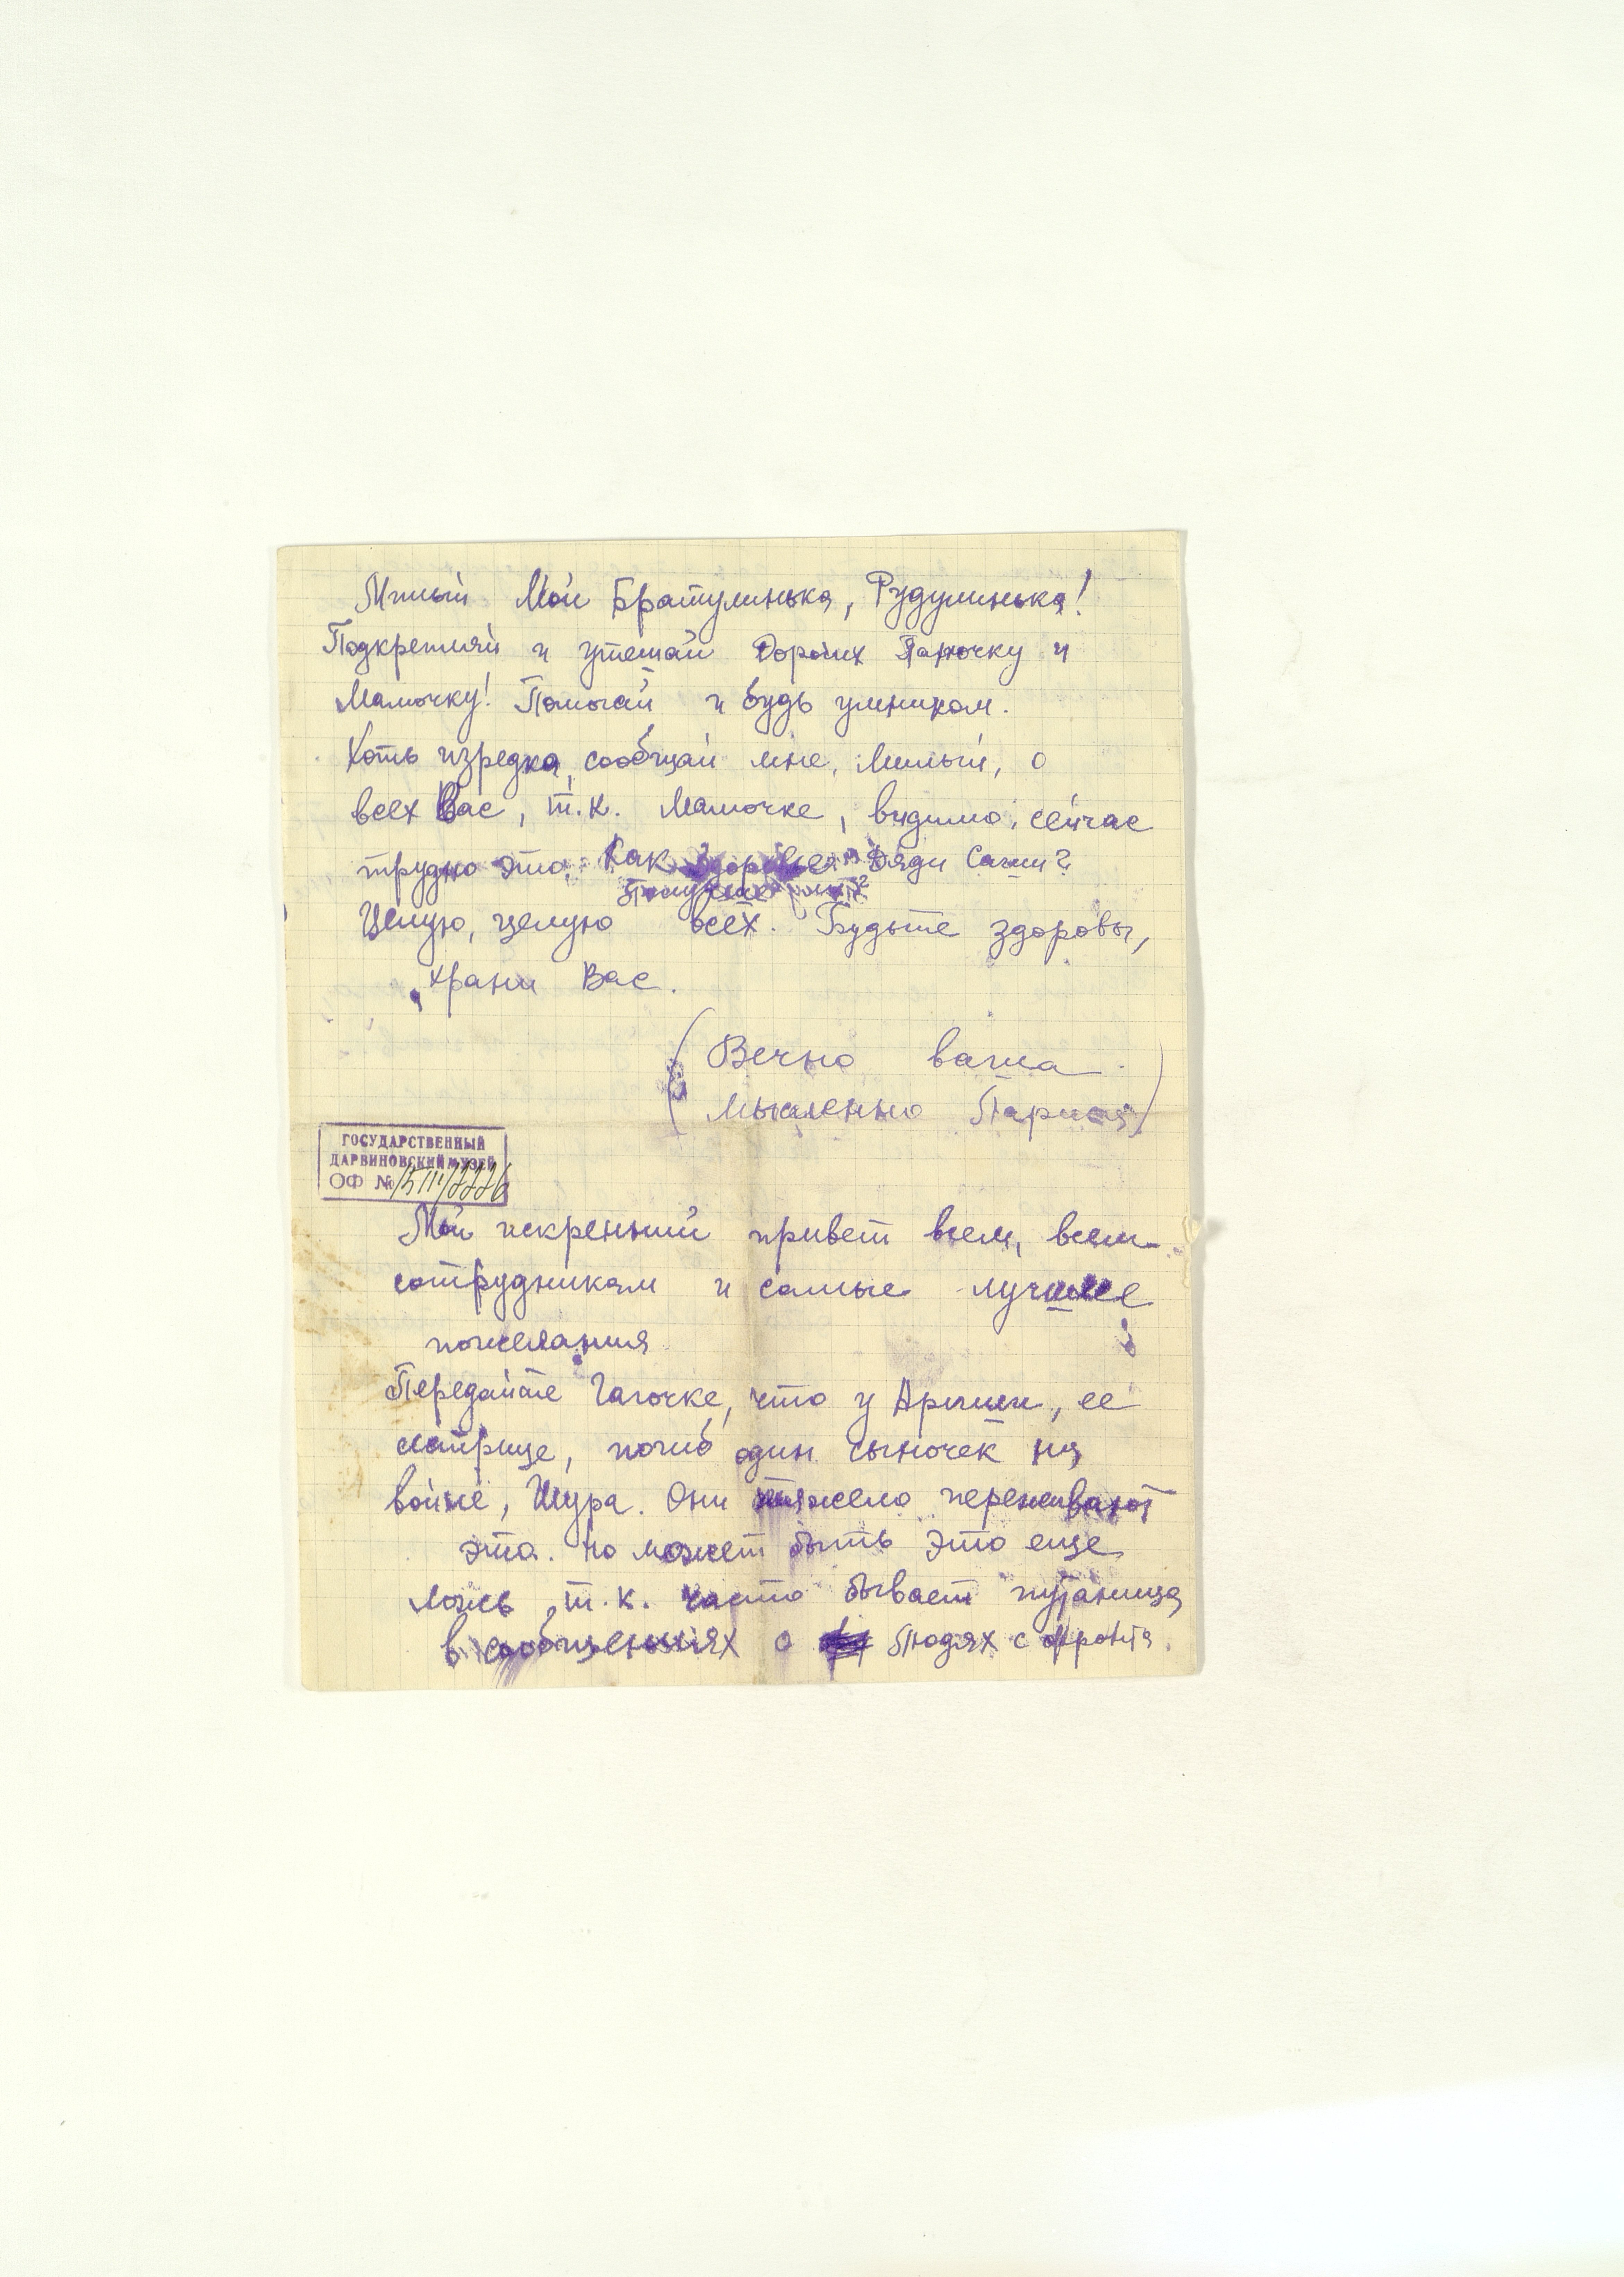 Милый Мой Братулинька, Рудулинька!
Подкрепляй и утешай Дорогих Папочку и
Мамочку! Помогай и будь умником.
Хоть изредка, сообщай мне, Милый, о
всех Вас, т.к. Мамочке, видимо, сейчас
трудно это. Как здоровье Дяди Саши?
Целую, целую всех. Будьте здоровы,
храни Вас.
(Вечно ваша
мысленно
ГОСУДАРСТВЕННЫЙ
ДАРВИНОВСКИЙ МУЗЕЙ
ОФ №
Мой искренний привет всем, всем
сотрудникам и самые лучшие
пожелания
Передайте Гагочке, что у Ариши, ее
сестрице, погиб один сыночек на
войне, Шура. Они тяжело переживают
это. Но может быть это еще
ложь, т.к. часто бывает путаница
в сообщениях о людях с фронта.